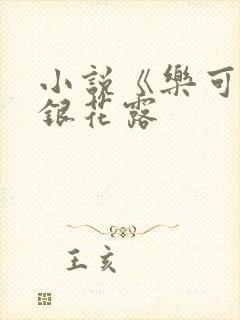 小說《樂可
銀花露
王亥